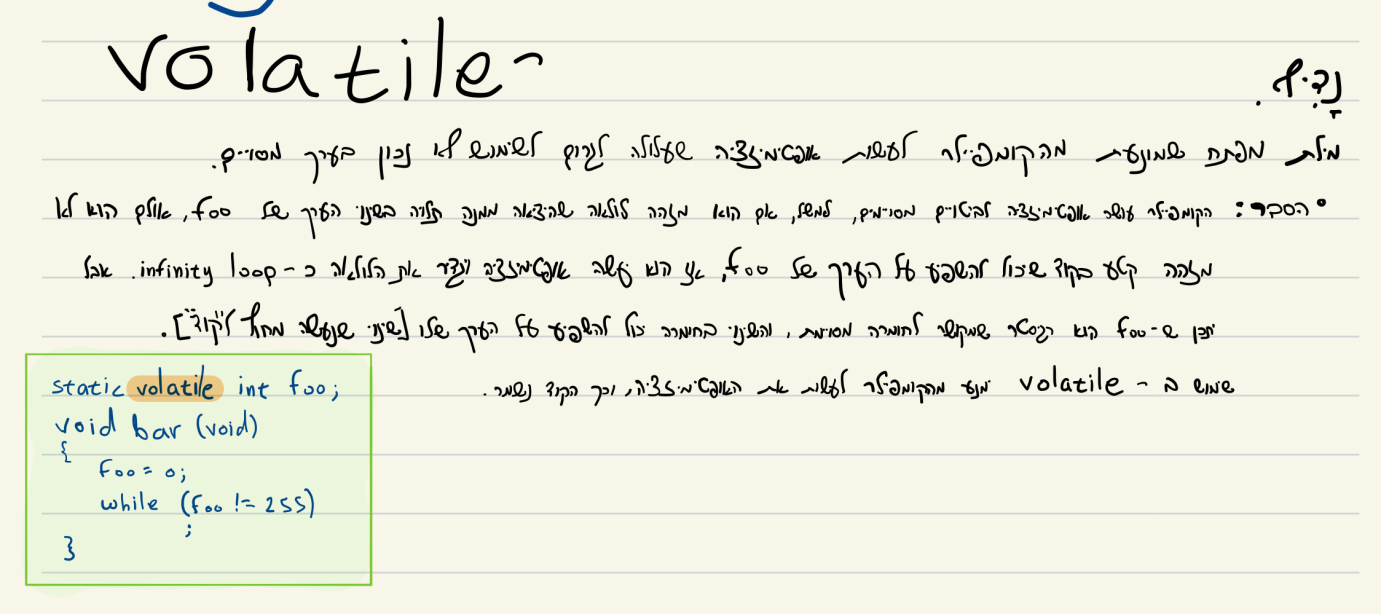 volatile - נָדִיף.
מילת מפתח שמונעת מהקומפיילר לעשות אופטימיזציה שעלולה לגרום לשימוש לא נכון בערך מסויים.
•הסבר: הקומפילר עושה אופטימיזציה לביטויים מסוימים, למשל, אם הוא מזהה לולאה שהיציאה ממנה תלויה בשינוי הערך של foo, אולם הוא לא
מזהה קטע בקוד שיכול להשפיע על הערך של foo, אז הוא יעשה אופטימיזציה ויגדיר את הלולאה כ- infinity loop. אבל
יתכן ש-foo הוא רגיסטר שמקושר לחומרה מסוימת, והשינוי בחומרה יכול להשפיע על הערך שלו [שינוי שנעשה מחוץ ל"קוד"].
שימוש ב - volatile ימנע מהקומפילר לעשות את האופטימיזציה, וכך הקוד נשמר.
static volatile int foo;
void bar (void)
{
foo = 0;
while (foo != 255)
;
}